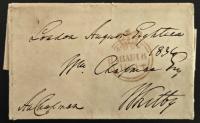 London August Eighteen
1836
Wm. Chapman Esq
Whitby
A Chapman